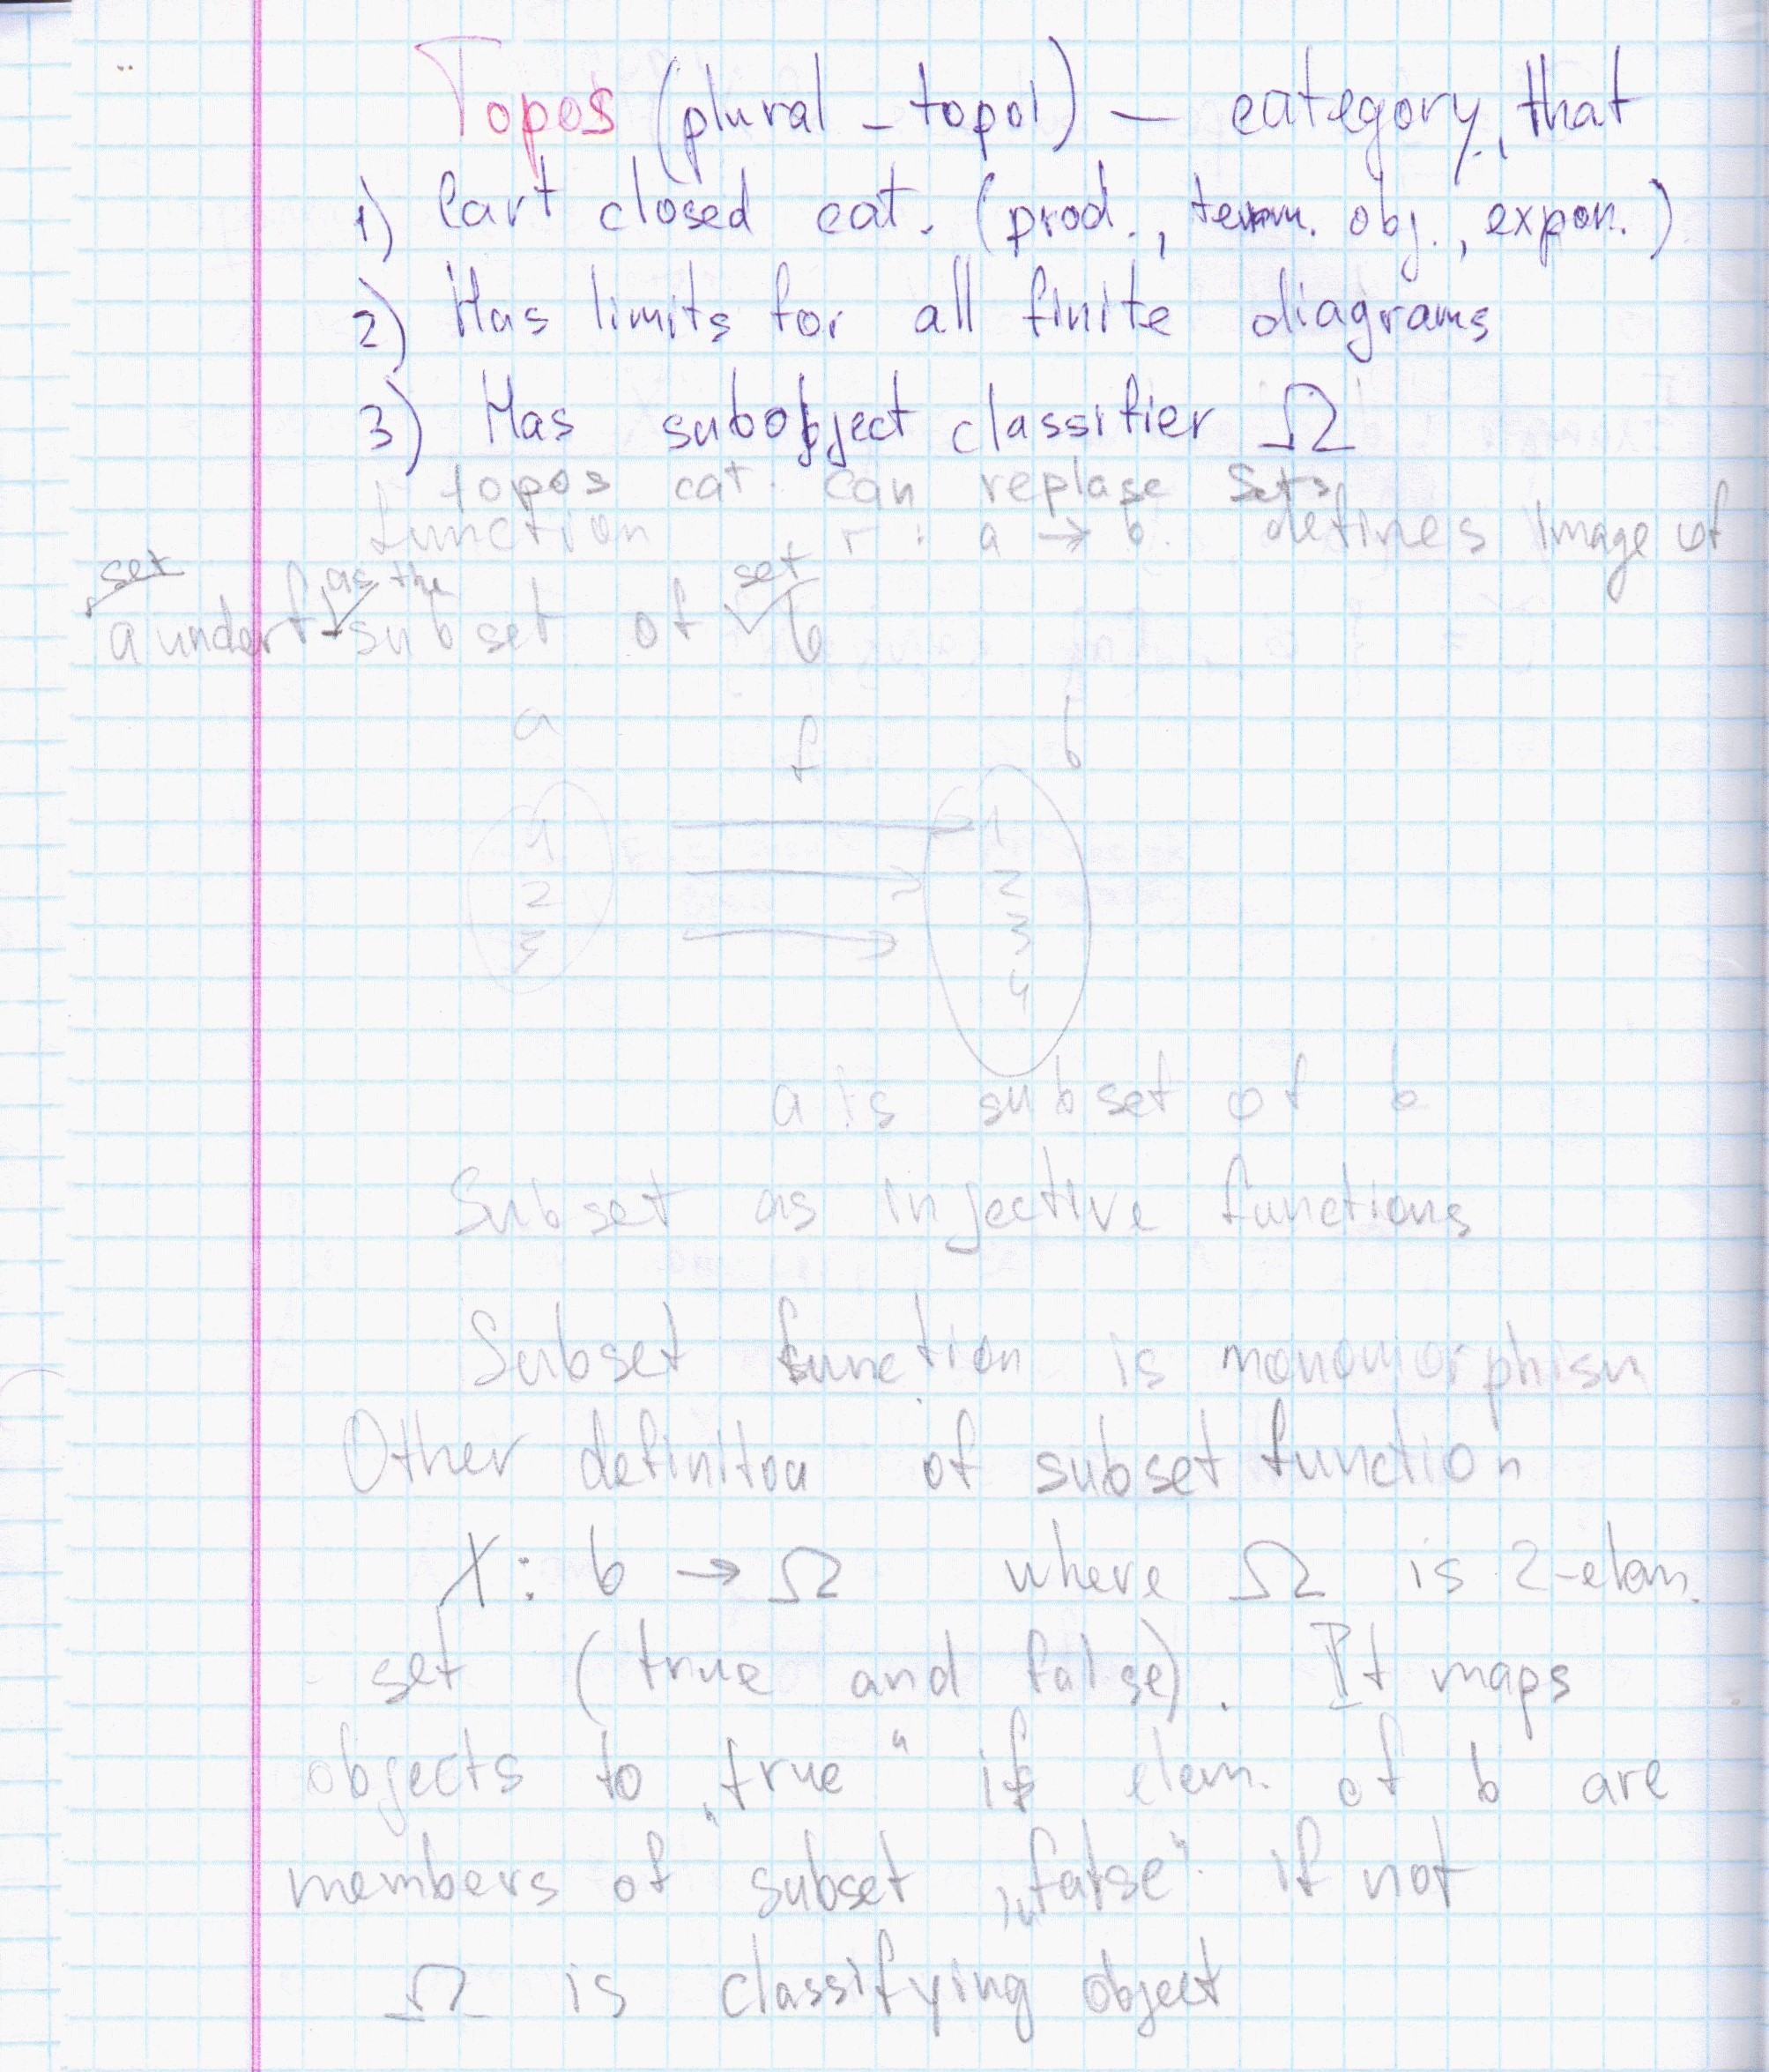 Topos (plural – topoi) — category, that
1) Cart closed cat. (prod., term. obj., expon.)
2) Has limits for all finite diagrams
3) Has subobject classifier Ω
topos cat. can replase Sets
function f : a → b. defines image of
set as the set
a under f subset of b
a f b
1 1
2 2
3 3
4
a is subset of b
Subset as injective functions
Subset function is monomorphism
Other definiton of subset function
χ: b → Ω where Ω is 2-elem.
set (true and false). It maps
objects to „true“ if elem. of b are
members of subset „false“ if not
Ω is classifying object